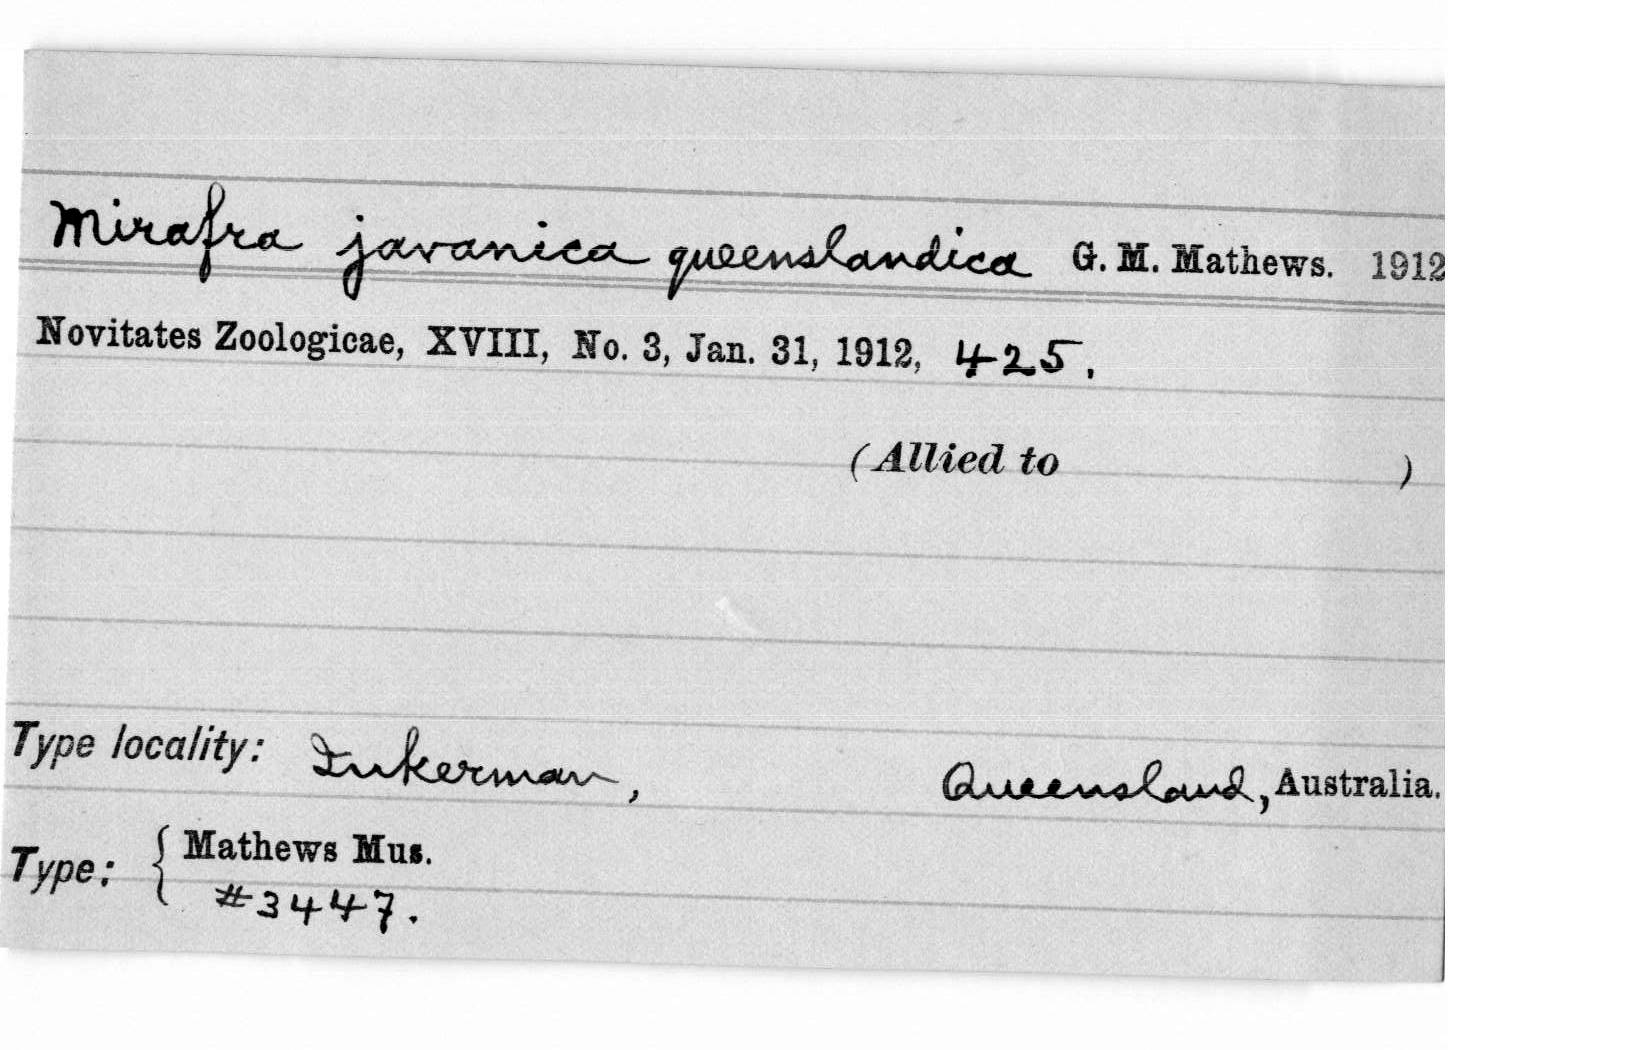 Mirafra javanica queenslandica G. M. Mathews. 1912
Novitates Zoologicae, XVIII, No. 3, Jan. 31, 1912, 425.
(Allied to )
Type locality: Inkerman, Queensland, Australia.
Type: { Mathews Mus.
#3447.